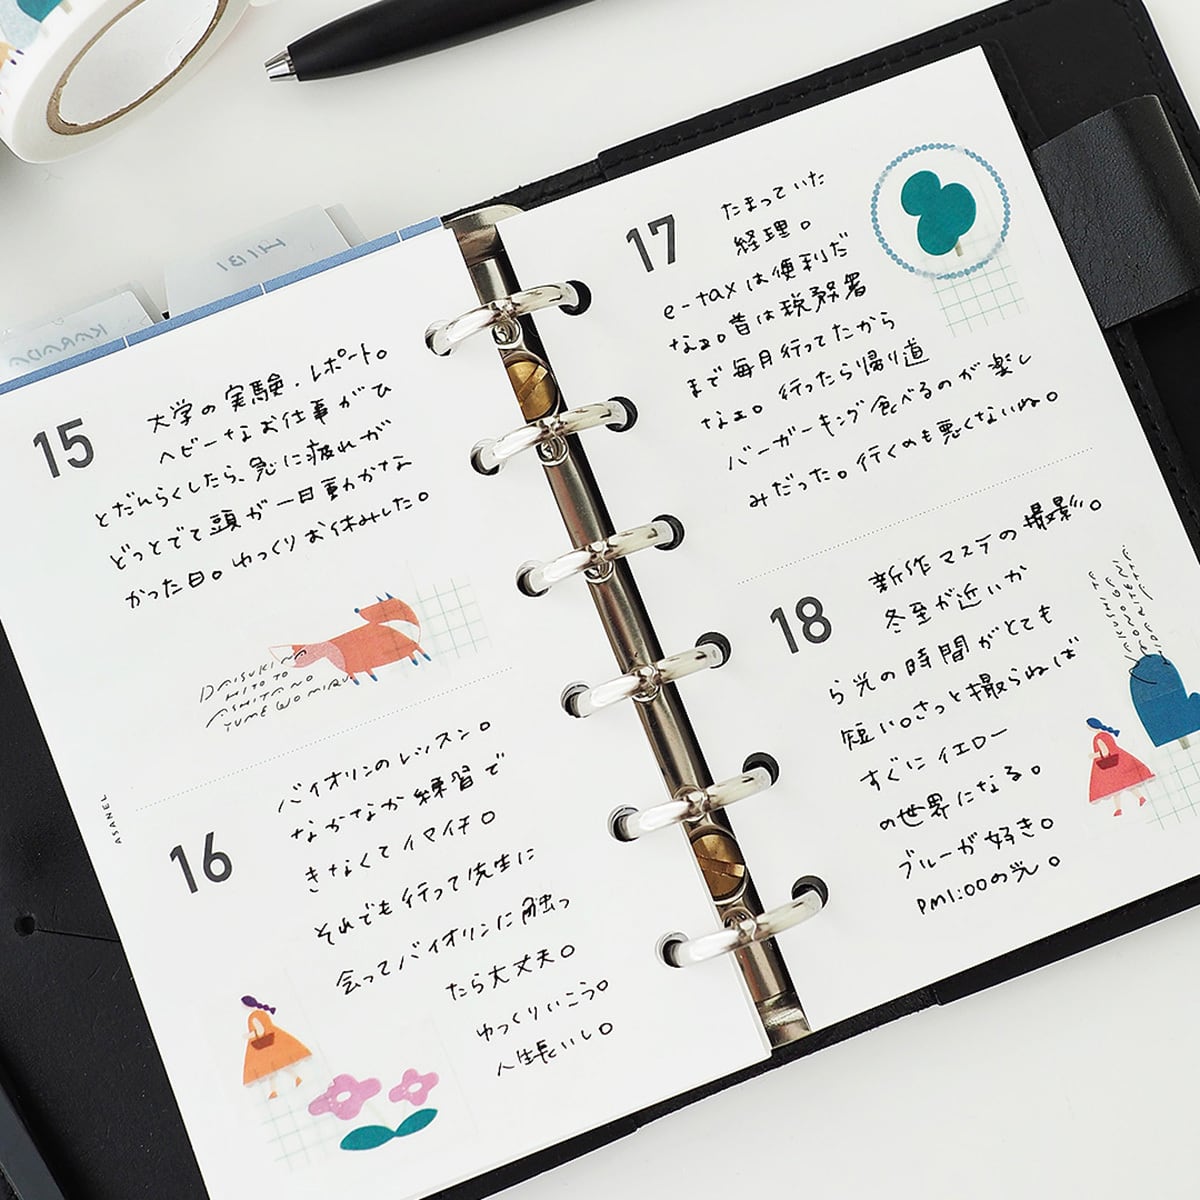 HIBI
KARADA
15
大学の実験・レポート。
ヘビーなお仕事がひ
とだんらくしたら、急に疲れが
どっとでて頭が一日動かな
かった日。ゆっくりお休みした。
DAISUKINA
HITO TO
ASHITA NO
YUME WO MIRU
ASANEL
16
バイオリンのレッスン。
なかなか練習で
きなくてイマイチ。
それでも行って先生に
会ってバイオリンに触っ
たら大丈夫。
ゆっくりいこう。
人生長いし。
17
たまっていた
経理。
e-taxは便利だ
なぁ。昔は税務署
まで毎月行ってたから
なぁ。行ったら帰り道
バーガーキング食べるのが楽し
みだった。行くのも悪くないね。
18
新作マステの撮影。
冬至が近いか
ら光の時間がとても
短い。さっと撮らねば
すぐにイエロー
の世界になる。
ブルーが好き。
PM1:00の光。